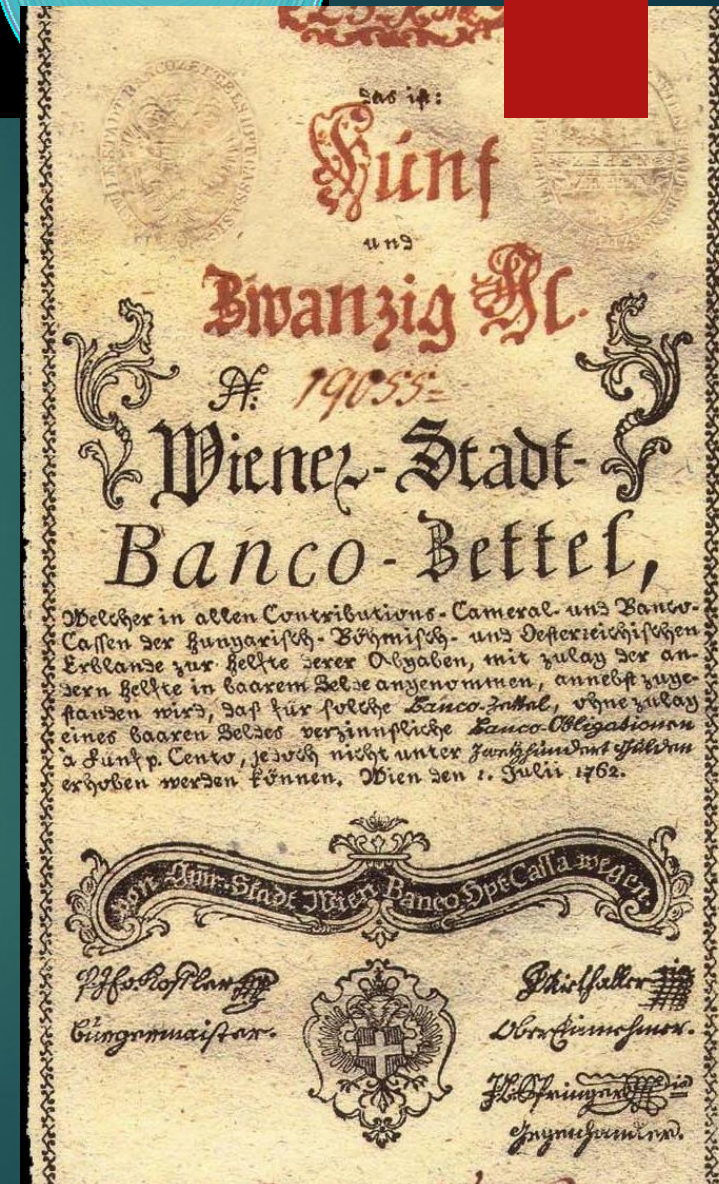 das ist:
Fünf
und
Zwanzig Fl.
N: 19055
Wiener-Stadt-
Banco-Zettel,
Welcher in allen Contributions-Cameral- und Banco-
Cassen der Hungarisch-Böhmisch- und Oesterreichischen
Erblande zur Helfte derer Abgaben, mit zulag der an-
dern Helfte in baarem Gelde angenommen, annebst zuge-
standen wird, daß für solche Banco-Zettel, ohne zulag
eines baaren Geldes verzinnßliche Banco-Obligationen
à Fünf p. Cento, jedoch nicht unter Zweyhundert Gulden
erhoben werden können. Wien den 1. Julii 1762.
von Stadt Wien Banco Hpt Cassa wegen
Bürgermaister.
OberEinnehmer.
Gegenhandler.